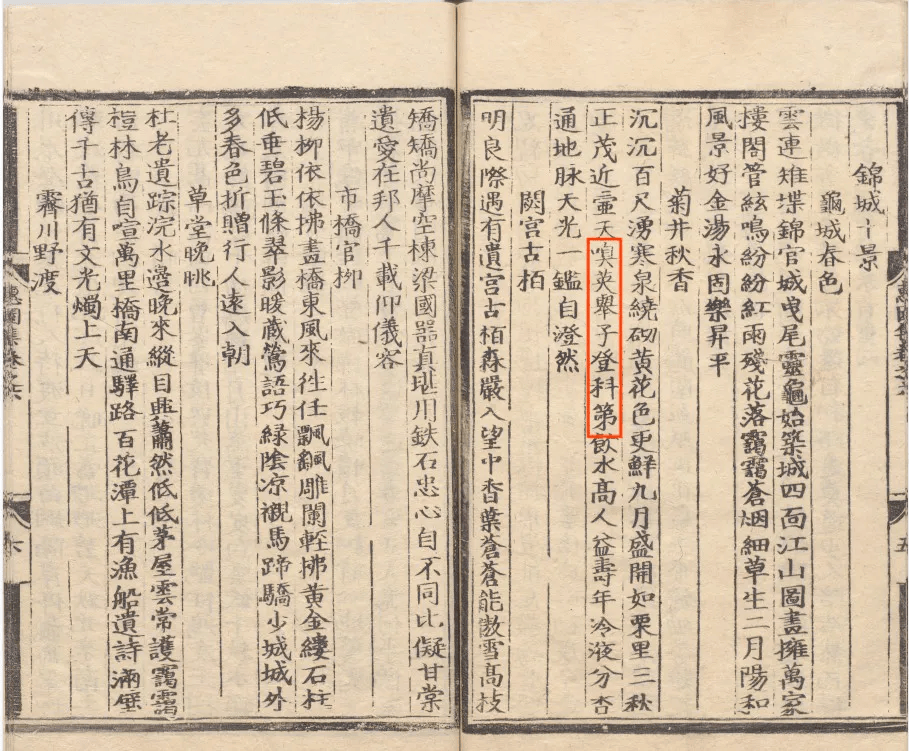 錦城十景
龜城春色
雲連雉堞錦官城曳尾靈龜始築城四面江山圖畫擁萬家
樓閣管絃鳴紛紛紅雨殘花落靄靄蒼烟細草生二月陽和
風景好金湯永固樂昇平
菊井秋香
沉沉百尺湧寒泉繞砌黃花色更鮮九月盛開如栗里三秋
正茂近壺天嗅英舉子登科第飲水高人益壽年冷液分香
通地脉天光一鑑自澄然
閟宮古栢
明良際遇有遺宮古栢森嚴入望中香葉蒼蒼能傲雪高枝
矯矯尚摩空棟梁國器真堪用鉄石忠心自不同比儗甘棠
遺愛在邦人千載仰儀容
市橋官栁
楊栁依依拂畫橋東風來徃任飄飄雕闌輕拂黃金縷石柱
低垂碧玉條翠影暖藏鶯語巧綠陰凉襯馬蹄驕少城城外
多春色折贈行人遠入朝
草堂晚眺
杜老遺踪浣水邊晚來縱目興蕭然低低茅屋雲常護靄靄
榿林鳥自喧萬里橋南通驛路百花潭上有漁船遺詩滿壁
傳千古猶有文光燭上天
霽川野渡